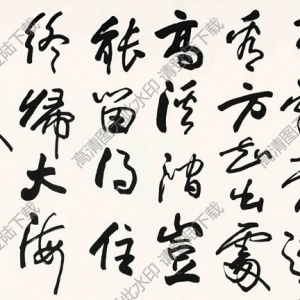 看方知出處
高溪澗豈
能留得住
終歸大海
高清图无此水印 请登陆下载